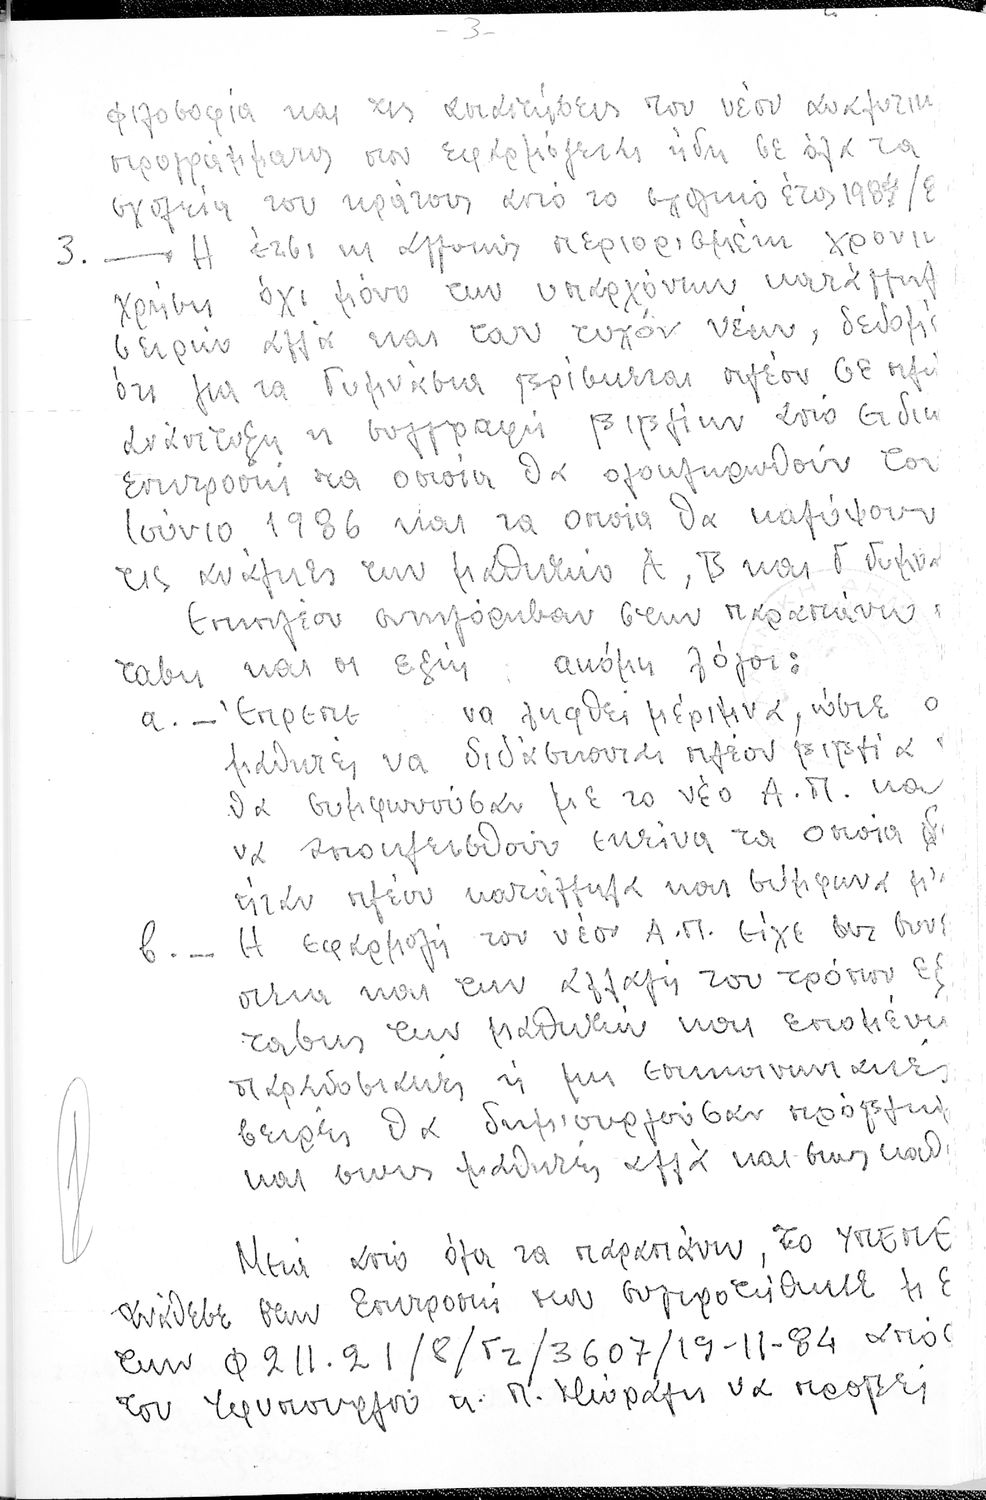 - 3 -
φιλοσοφία και τις απαιτήσεις του νέου αναλυτικ
προγράμματος που εφαρμόζεται ήδη σε όλα τα
σχολεία του κράτους από το σχολικό έτος 1984/8
3. — Η έτσι κι αλλοιώς περιορισμένη χρονικ
χρήση όχι μόνο των υπαρχόντων κατάλληλ
σειρών αλλά και των τυχόν νέων, δεδομέ
ότι για τα Γυμνάσια βρίσκεται πλέον σε πλή
ανάπτυξη η συγγραφή βιβλίων από ειδικ
επιτροπή τα οποία θα ολοκληρωθούν τον
Ιούνιο 1986 και τα οποία θα καλύψουν
τις ανάγκες των μαθητών Α, Β και Γ Γυμνα
Επιπλέον συνηγόρησαν στην παραπάνω
ταση και οι εξής ακόμη λόγοι:
α. — Έπρεπε να ληφθεί μέριμνα, ώστε ο
μαθητές να διδάσκονται πλέον βιβλία
θα συμφωνούσαν με το νέο Α.Π. κα
να αποκλεισθούν εκείνα τα οποία δ
ήταν πλέον κατάλληλα και σύμφωνα μ'
β. — Η εφαρμογή του νέου Α.Π. είχε σα συνέ
πεια και την αλλαγή του τρόπου εξ
τασης των μαθητών και επομένω
παραδοσιακές ή μη επικοινωνιακές
σειρές θα δημιουργούσαν πρόβλημ
και στους μαθητές αλλά και στους καθ
Μετά από όλα τα παραπάνω, το ΥΠΕΠΘ
ανάθεσε στην Επιτροπή που συγκροτήθηκε με
την Φ 211.21/8/Γ2/3607/19-11-84 από
του Υφυπουργού κ. Π. Μώραλη να προβεί